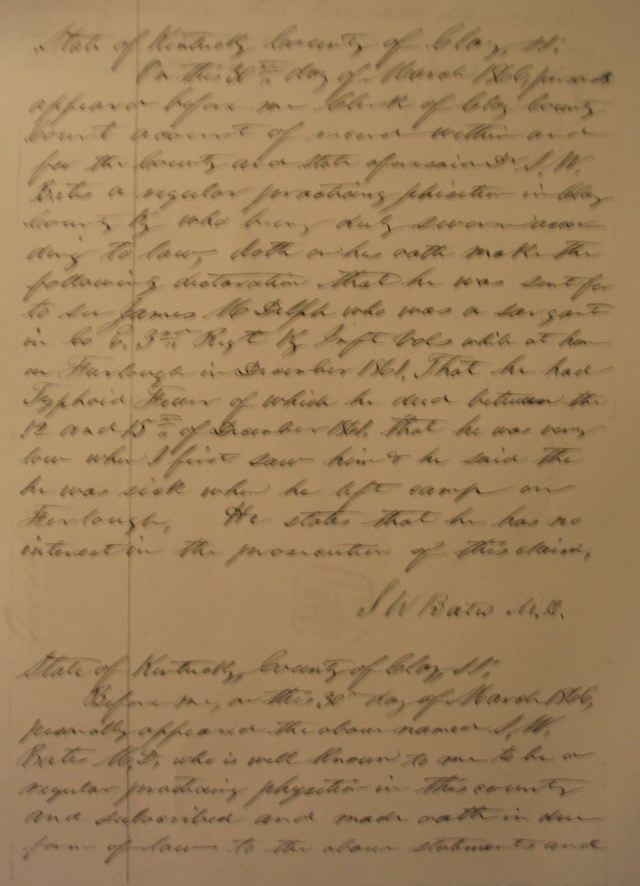 State of Kentucky County of Clay, ss:
On this 30th day of March 1866, person
appeared before me Clerk of Clay County
Court a court of record within and
for the County and State aforesaid Dr J. W.
Bates a regular practicing phisition in Clay
County Ky who being duly sworn accor
ding to law, doth on his oath make the
following declaration that he was sent for
to see James M Delph who was a sargant
in Co E. 3rd Regt Ky Inft Vols while at home
on Furlough in December 1861. That he had
Typhoid Fever of which he died between the
12 and 15th of December 1861. that he was very
low when I first saw him & he said the
he was sick when he left camp on
Furlough. He states that he has no
interest in the prosecution of this claim.
J W Bates M.D.
State of Kentucky, County of Clay, ss:
Before me, on this 30th day of March 1866,
personally appeared the above named J. W.
Bates M.D. who is well known to me to be a
regular practicing physition in this county
and subscribed and made oath in due
form of law to the above statements and